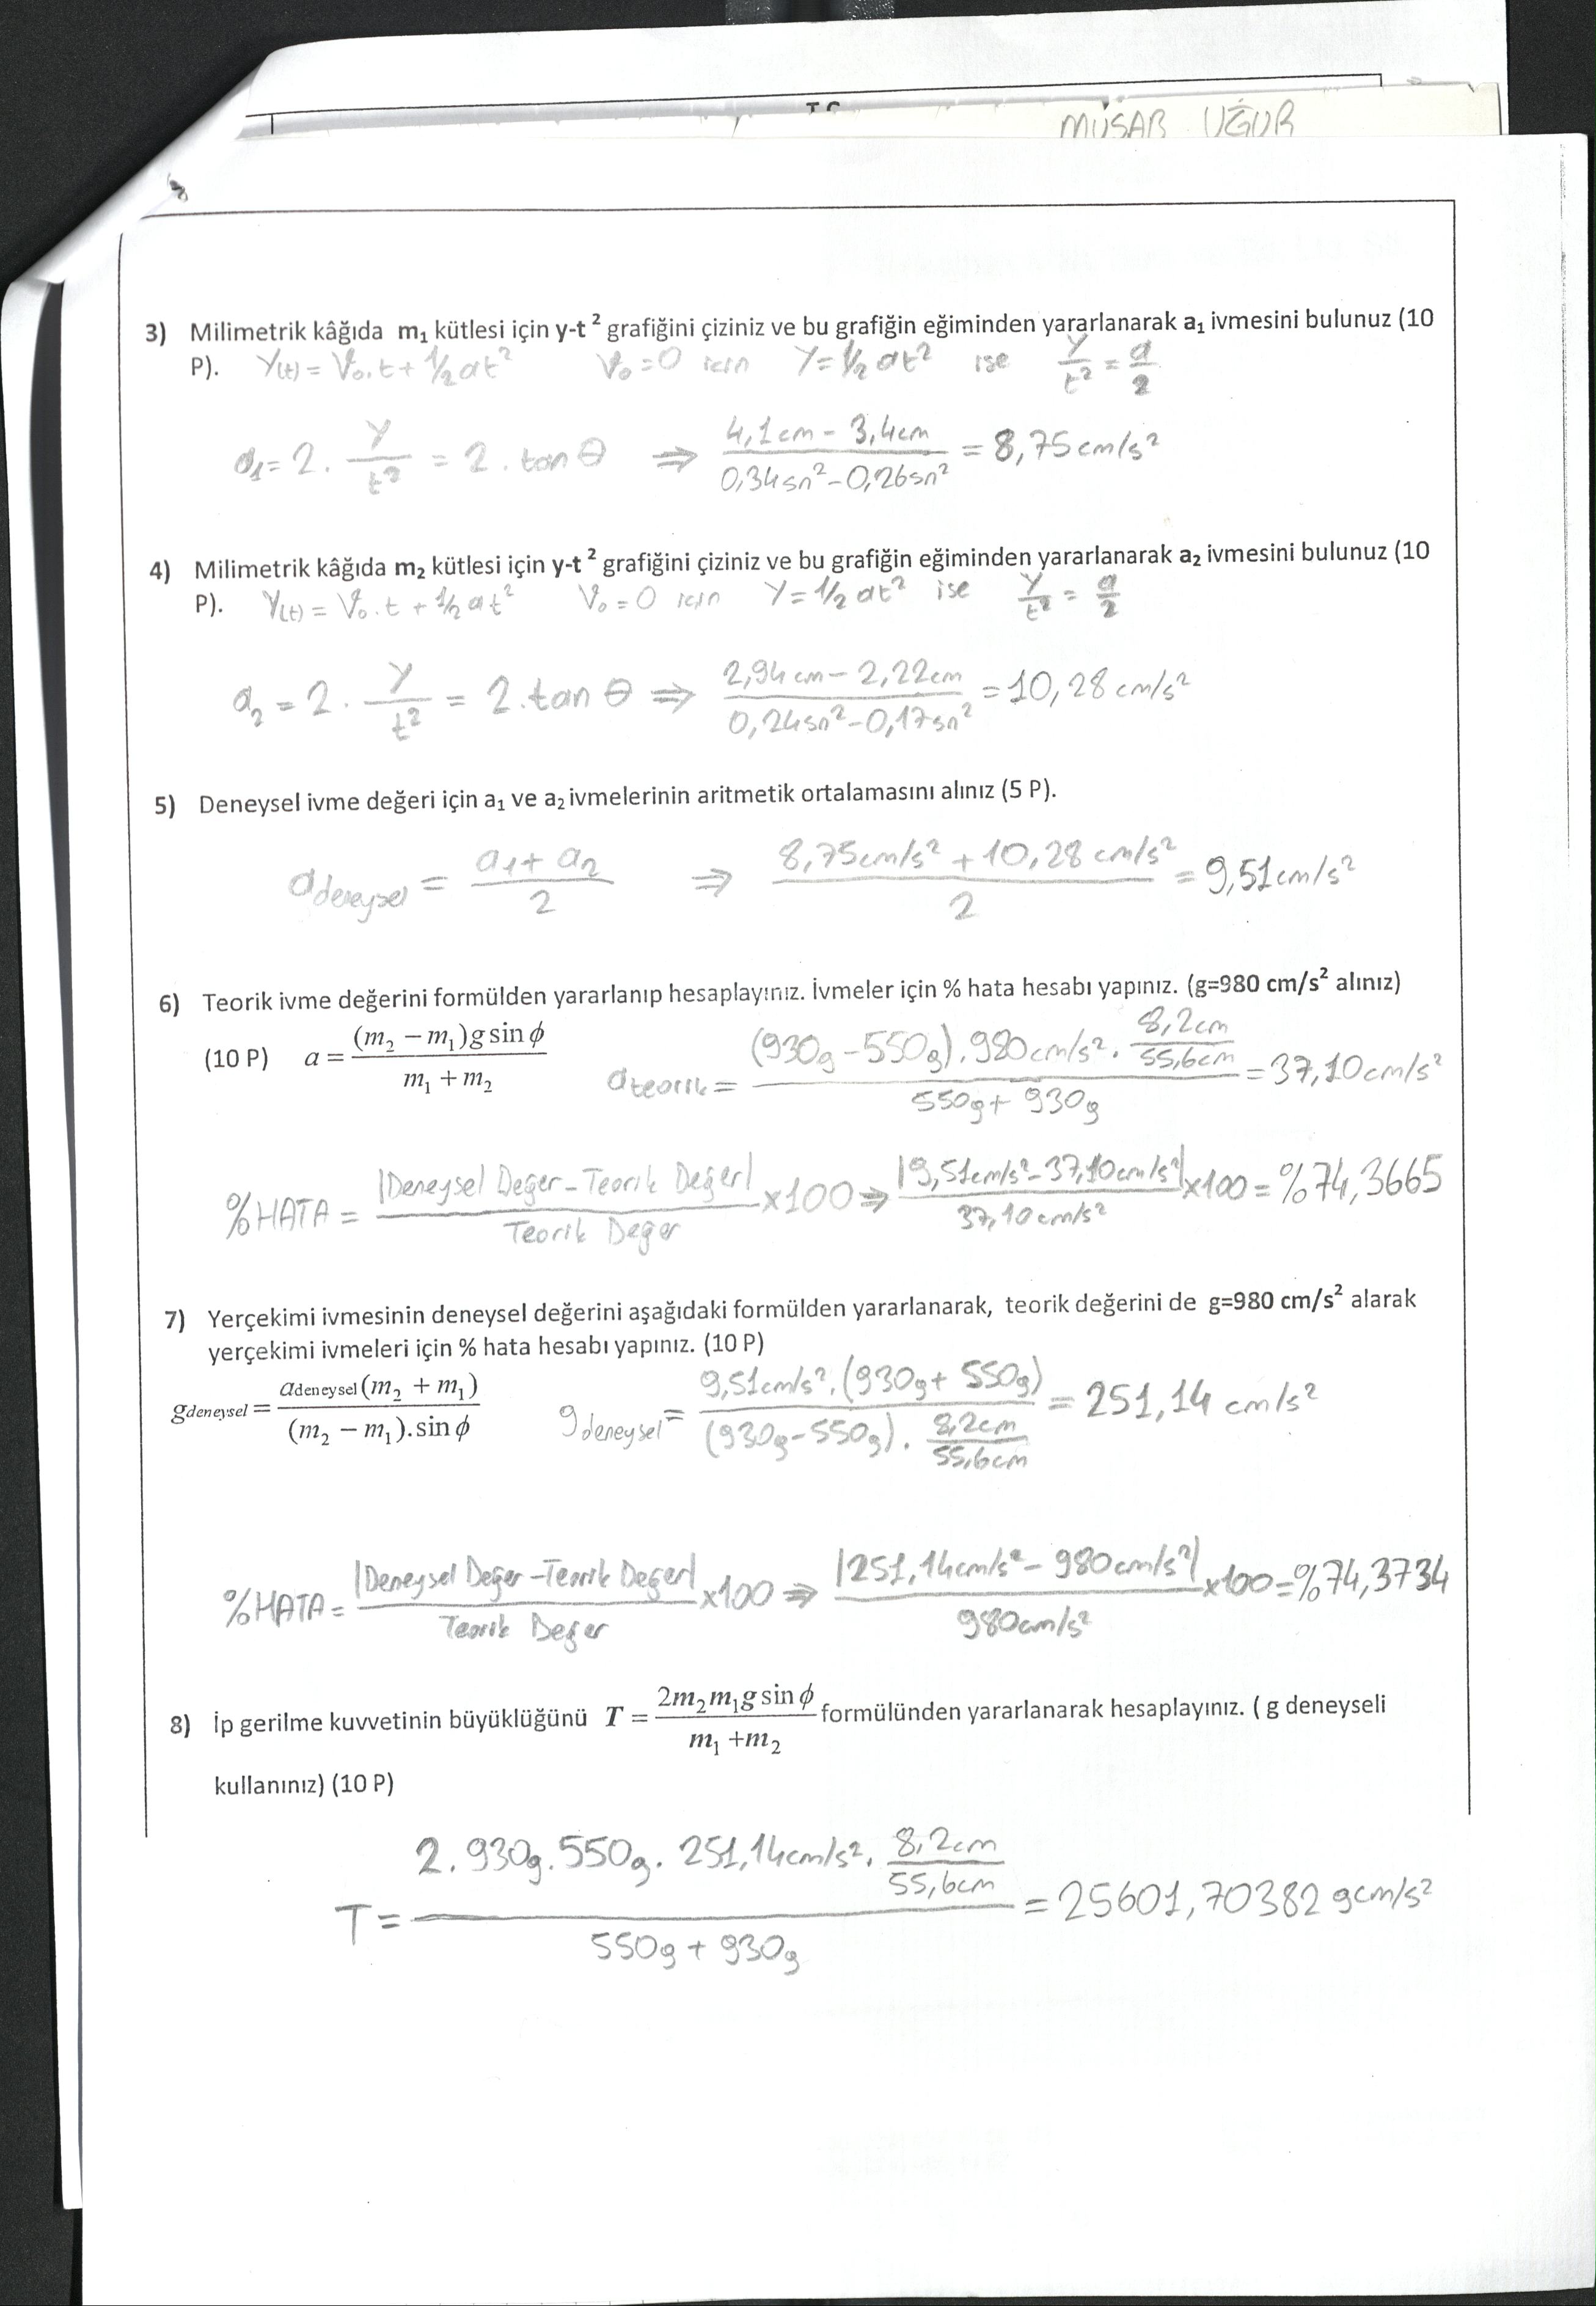 MÜSAB UĞUR
3) Milimetrik kâğıda m₁ kütlesi için y-t² grafiğini çiziniz ve bu grafiğin eğiminden yararlanarak a₁ ivmesini bulunuz (10
P). Y(t) = V₀.t + 1/2 at² V₀ = 0 için Y = 1/2 at² ise Y/t² = a/2
a₁ = 2 . Y/t² = 2 . tan θ ⇒ (4,1cm - 3,4cm)/(0,34sn² - 0,26sn²) = 8,75cm/s²
4) Milimetrik kâğıda m₂ kütlesi için y-t² grafiğini çiziniz ve bu grafiğin eğiminden yararlanarak a₂ ivmesini bulunuz (10
P). Y(t) = V₀.t + 1/2 at² V₀ = 0 için Y = 1/2 at² ise Y/t² = a/2
a₂ = 2 . Y/t² = 2 . tan θ ⇒ (2,94cm - 2,22cm)/(0,24sn² - 0,17sn²) = 10,28 cm/s²
5) Deneysel ivme değeri için a₁ ve a₂ ivmelerinin aritmetik ortalamasını alınız (5 P).
a deneysel = (a₁ + a₂)/2 ⇒ (8,75cm/s² + 10,28 cm/s²)/2 = 9,51cm/s²
6) Teorik ivme değerini formülden yararlanıp hesaplayınız. İvmeler için % hata hesabı yapınız. (g=980 cm/s² alınız)
(10 P) a = (m₂ − m₁)g sin ϕ/(m₁ + m₂) a teorik = ((930g - 550g) . 980cm/s² . 8,2cm/55,6cm)/(550g + 930g) = 37,10cm/s²
%HATA = |Deneysel Değer - Teorik Değer|/Teorik Değer x100 ⇒ |9,51cm/s² - 37,10cm/s²|/37,10cm/s² x100 = %74,3665
7) Yerçekimi ivmesinin deneysel değerini aşağıdaki formülden yararlanarak, teorik değerini de g=980 cm/s² alarak
yerçekimi ivmeleri için % hata hesabı yapınız. (10 P)
gdeneysel = adeneysel(m₂ + m₁)/((m₂ − m₁).sin ϕ) g deneysel = (9,51cm/s² . (930g + 550g))/((930g - 550g) . 8,2cm/55,6cm) = 251,14 cm/s²
%HATA = |Deneysel Değer - Teorik Değer|/Teorik Değer x100 ⇒ |251,14cm/s² - 980cm/s²|/980cm/s² x100 = %74,3734
8) İp gerilme kuvvetinin büyüklüğünü T = 2m₂m₁g sin ϕ/(m₁ + m₂) formülünden yararlanarak hesaplayınız. ( g deneyseli
kullanınız) (10 P)
T = (2 . 930g . 550g . 251,14cm/s² . 8,2cm/55,6cm)/(550g + 930g) = 25601,70382 gcm/s²